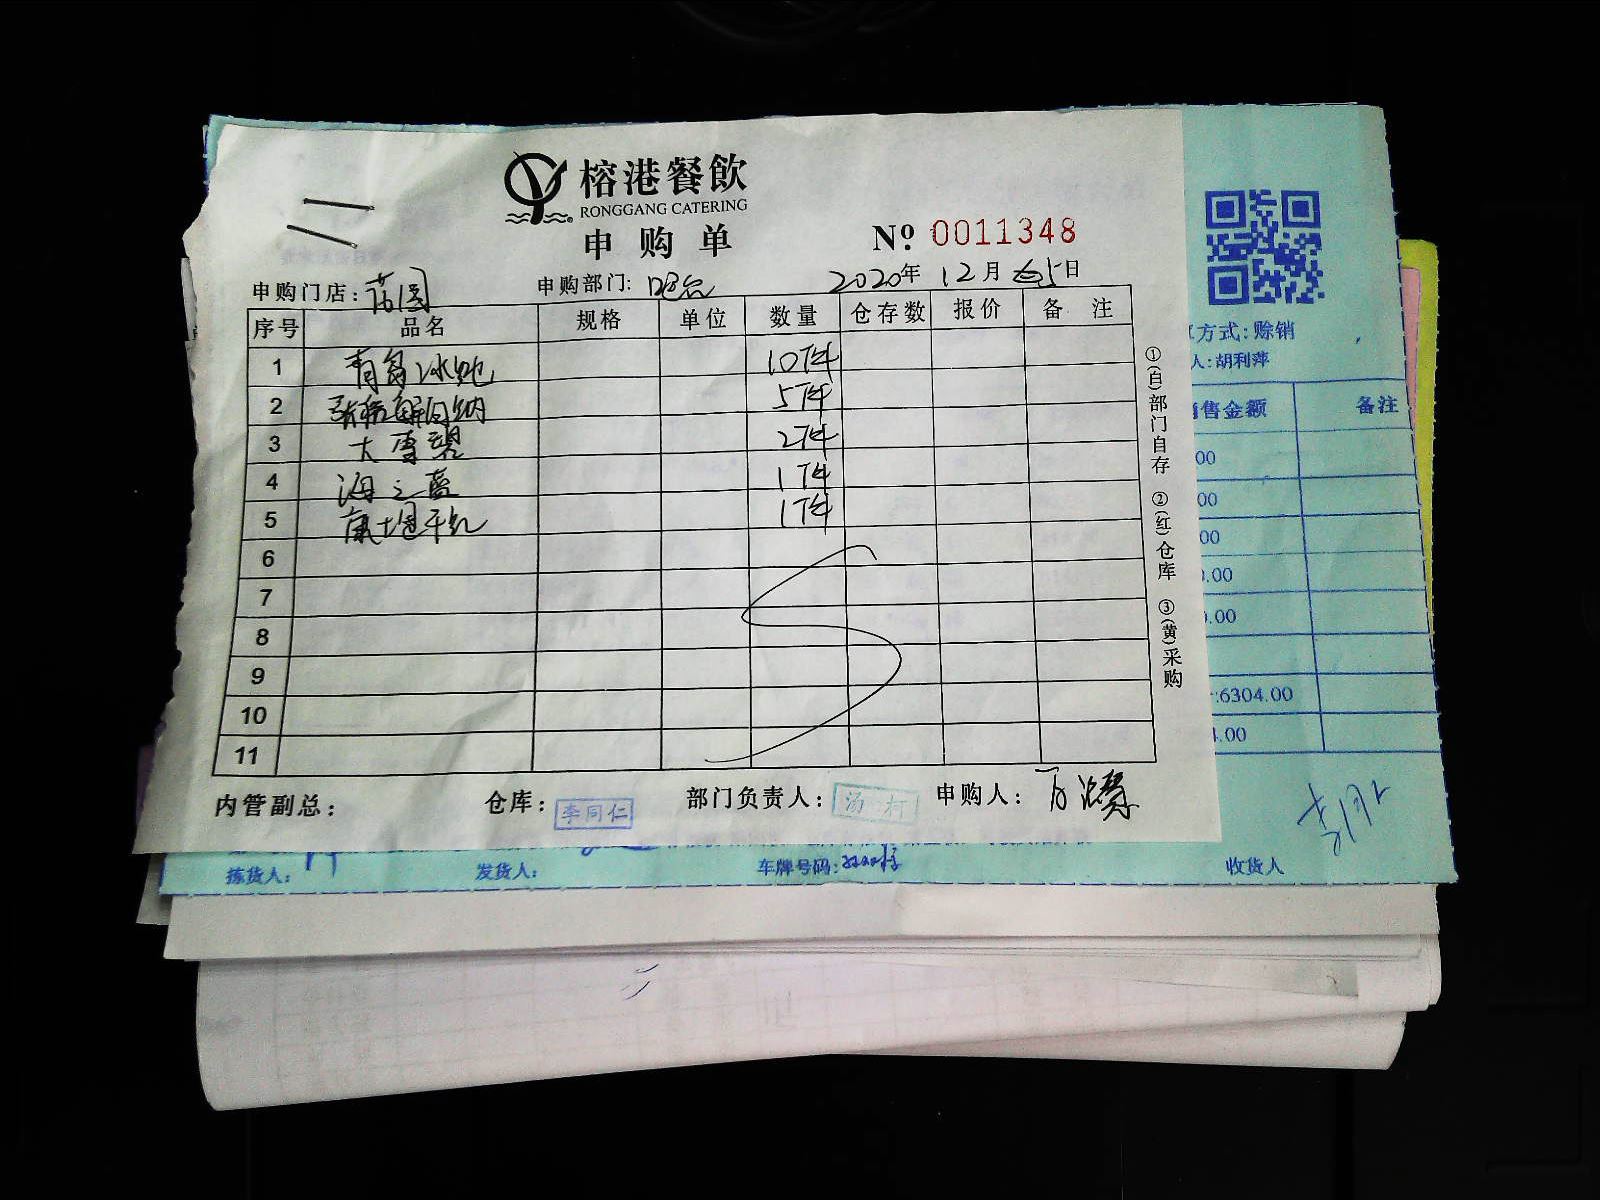 榕港餐飲
RONGGANG CATERING
申购单
№ 0011348
申购门店: 茹园
申购部门: 吧台
2020年 12月 5日
序号 品名 规格 单位 数量 仓存数 报价 备注
1 青岛冰纯 10件
2 张裕解百纳 5件
3 大雪碧 2件
4 海之蓝 1件
5 干红 1件
6
7
8
9
10
11
①(白)部门自存 ②(红)仓库 ③(黄)采购
内管副总: 仓库: 李同仁 部门负责人: 汤 申购人:
方式: 赊销
人: 胡利萍
售金额 备注
00
00
00
.00
.00
:6304.00
.00
拣货人: 发货人: 车牌号码: 收货人